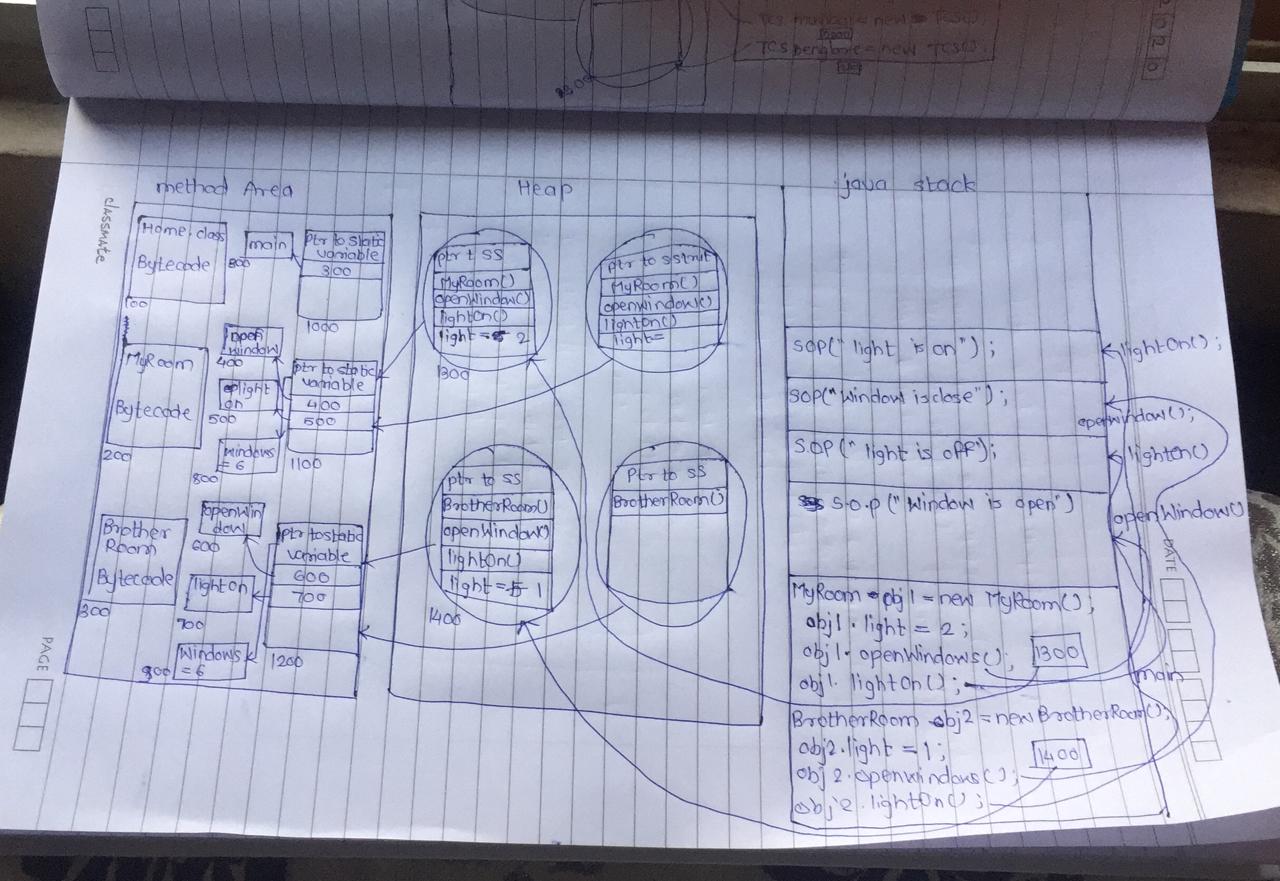 TCS = new TCS();
TCS = new TCS();
classmate
method Area
Home.class
Bytecode
100
main
800
Ptr to static
variable
300
1000
MyRoom
Bytecode
200
open
window
400
light
on
500
windows
= 6
800
ptr to static
variable
400
500
1100
Brother
Room
Bytecode
300
openWin
dow
600
lightOn
700
Windows
= 6
900
ptr to static
variable
600
700
1200
Heap
ptr t SS
MyRoom()
openWindow()
lightOn()
light = 2
1300
ptr to
MyRoom()
openWindow()
lightOn()
light=
ptr to SS
BrotherRoom()
openWindow()
lightOn()
light = 1
1400
Ptr to SS
BrotherRoom()
java stack
SOP(" light is on");
lightOn();
SOP("Window is close");
openwindow();
S.O.P (" light is off");
lightOn()
S.O.P ("Window is open")
openWindow()
MyRoom obj1 = new MyRoom();
obj1.light = 2;
obj1.openWindows();
1300
obj1.lightOn();
main
BrotherRoom obj2 = new BrotherRoom();
obj2.light = 1;
1400
obj2.openwindows();
obj2.lightOn();
PAGE
DATE